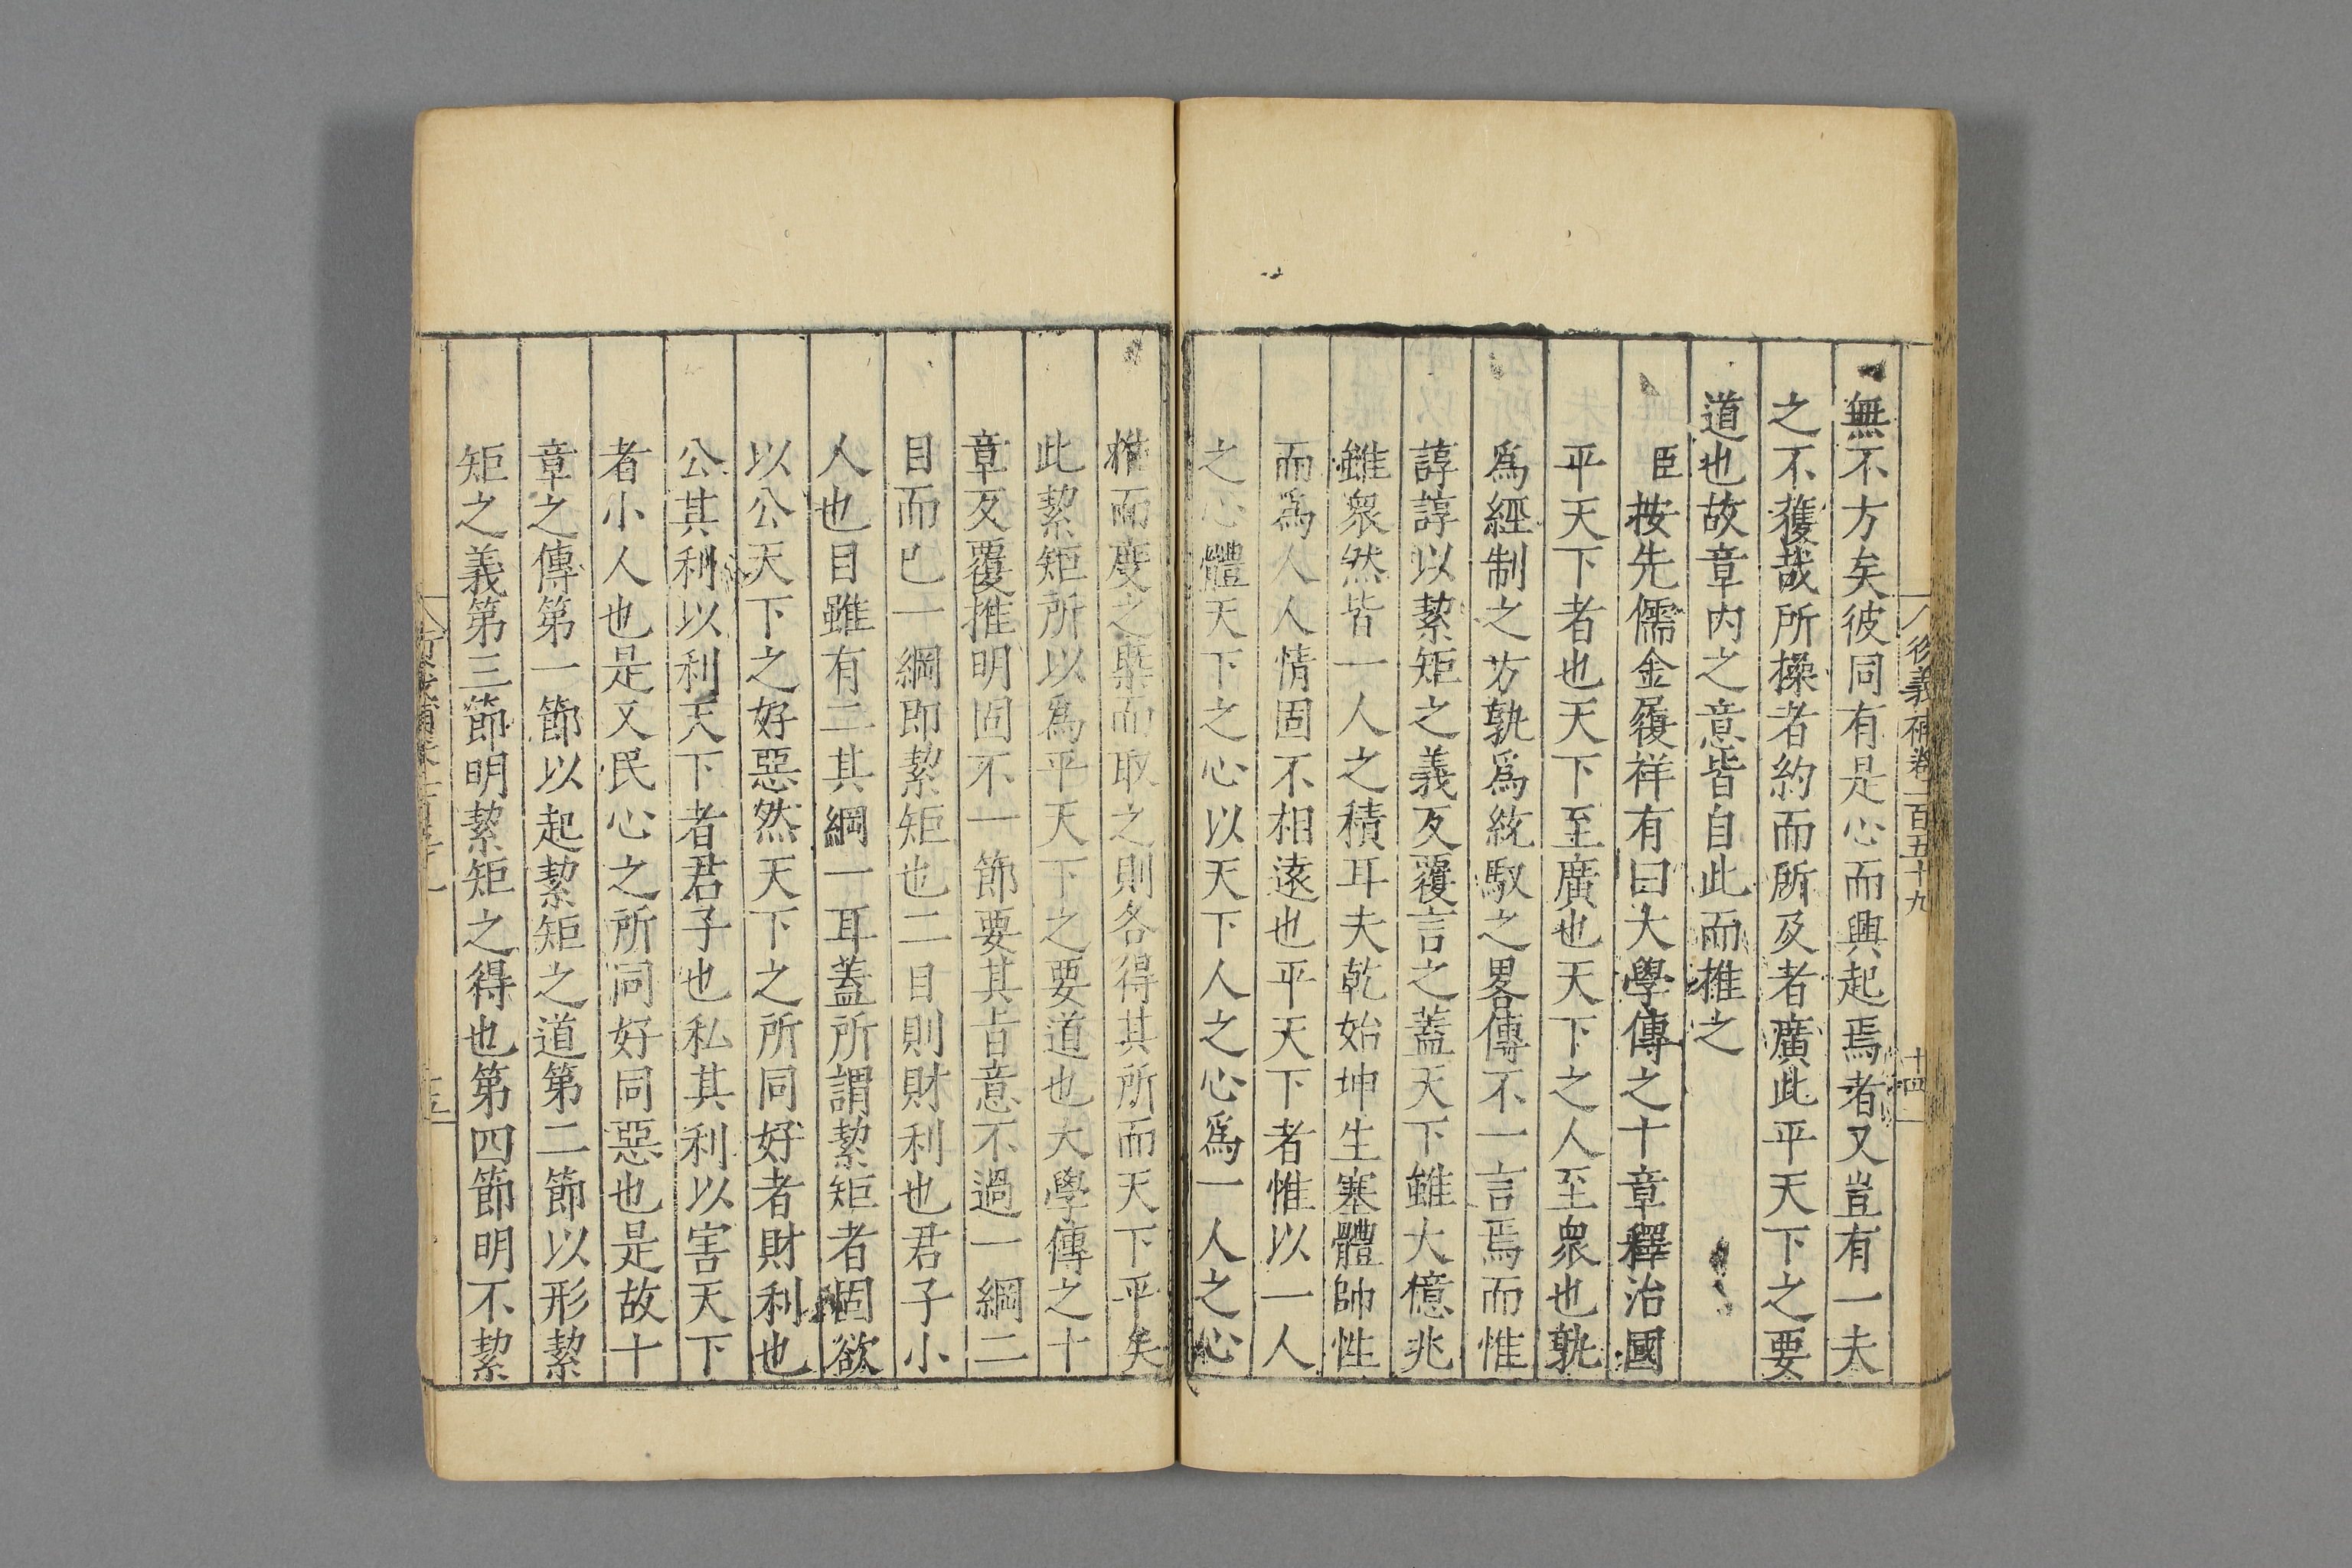 後義補卷一百五十九 十四
無不方矣彼同有是心而興起焉者又豈有一夫
之不獲哉所操者約而所及者廣此平天下之要
道也故章内之意皆自此而推之
臣按先儒金履祥有曰大學傳之十章釋治國
平天下者也天下至廣也天下之人至衆也孰
爲經制之方孰爲統馭之畧傳不一言焉而惟
諄諄以絜矩之義反覆言之蓋天下雖大億兆
雖衆然皆一人之積耳夫乾始坤生塞體帥性
而爲人人情固不相遠也平天下者惟以一人
之心體天下之心以天下人之心爲一人之心
推而度之槩而取之則各得其所而天下平矣
此絜矩所以爲平天下之要道也大學傳之十
章反覆推明固不一節要其旨意不過一綱二
目而已一綱即絜矩也二目則財利也君子小
人也目雖有二其綱一耳蓋所謂絜矩者固欲
以公天下之好惡然天下之所同好者財利也
公其利以利天下者君子也私其利以害天下
者小人也是又民心之所同好同惡也是故十
章之傳第一節以起絜矩之道第二節以形絜
矩之義第三節明絜矩之得也第四節明不絜